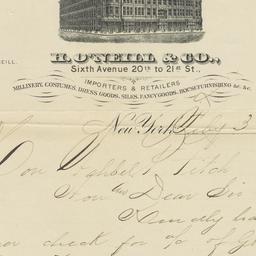 NEILL.
H. O'NEILL & CO.,
Sixth Avenue 20th to 21st St.,
IMPORTERS & RETAILERS
MILLINERY, COSTUMES, DRESS GOODS, SILKS, FANCY GOODS, HOUSEFURNISHING &c. &c.
New York, July 3
Hon Ashbel P Fitch
Dear Sir
Kindly
check for a/c of